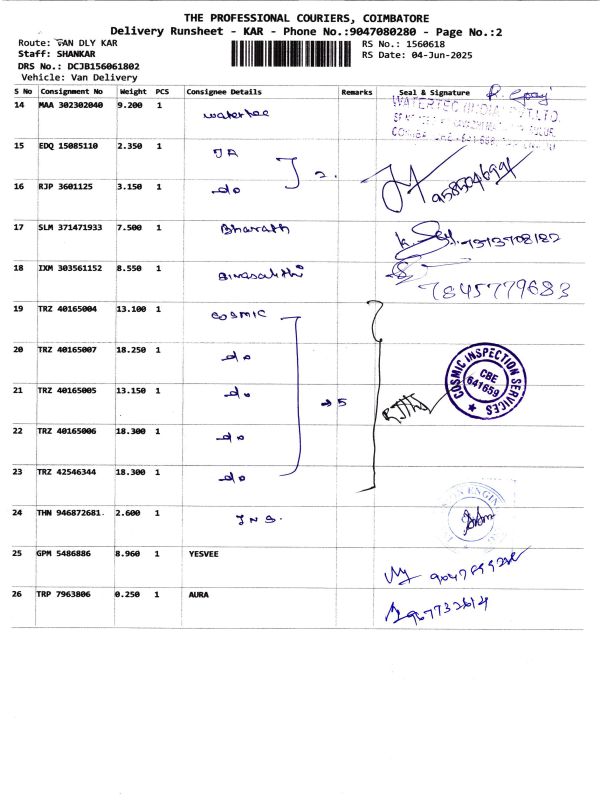 THE PROFESSIONAL COURIERS, COIMBATORE
Delivery Runsheet - KAR - Phone No.:9047080280 - Page No.:2
Route: VAN DLY KAR
RS No.: 1560618
Staff: SHANKAR
RS Date: 04-Jun-2025
DRS No.: DCJB156061802
Vehicle: Van Delivery
S No Consignment No Weight PCS Consignee Details Remarks Seal & Signature
14 MAA 302302040 9.200 1 Watertec
WATERTEC (INDIA) PVT.LTD.
15 EDQ 15085110 2.350 1 JA
16 RJP 3601125 3.150 1 do 2. 9585046994
17 SLM 371471933 7.500 1 Bharath 7373708182
18 IXM 303561152 8.550 1 7845779683
19 TRZ 40165004 13.100 1 COSMIC
20 TRZ 40165007 18.250 1 do
21 TRZ 40165005 13.150 1 do → 5
COSMIC INSPECTION SERVICES
CBE
641659
22 TRZ 40165006 18.300 1 do
23 TRZ 42546344 18.300 1 do
24 THN 946872681. 2.600 1 JNS.
25 GPM 5486886 8.960 1 YESVEE
26 TRP 7963806 0.250 1 AURA